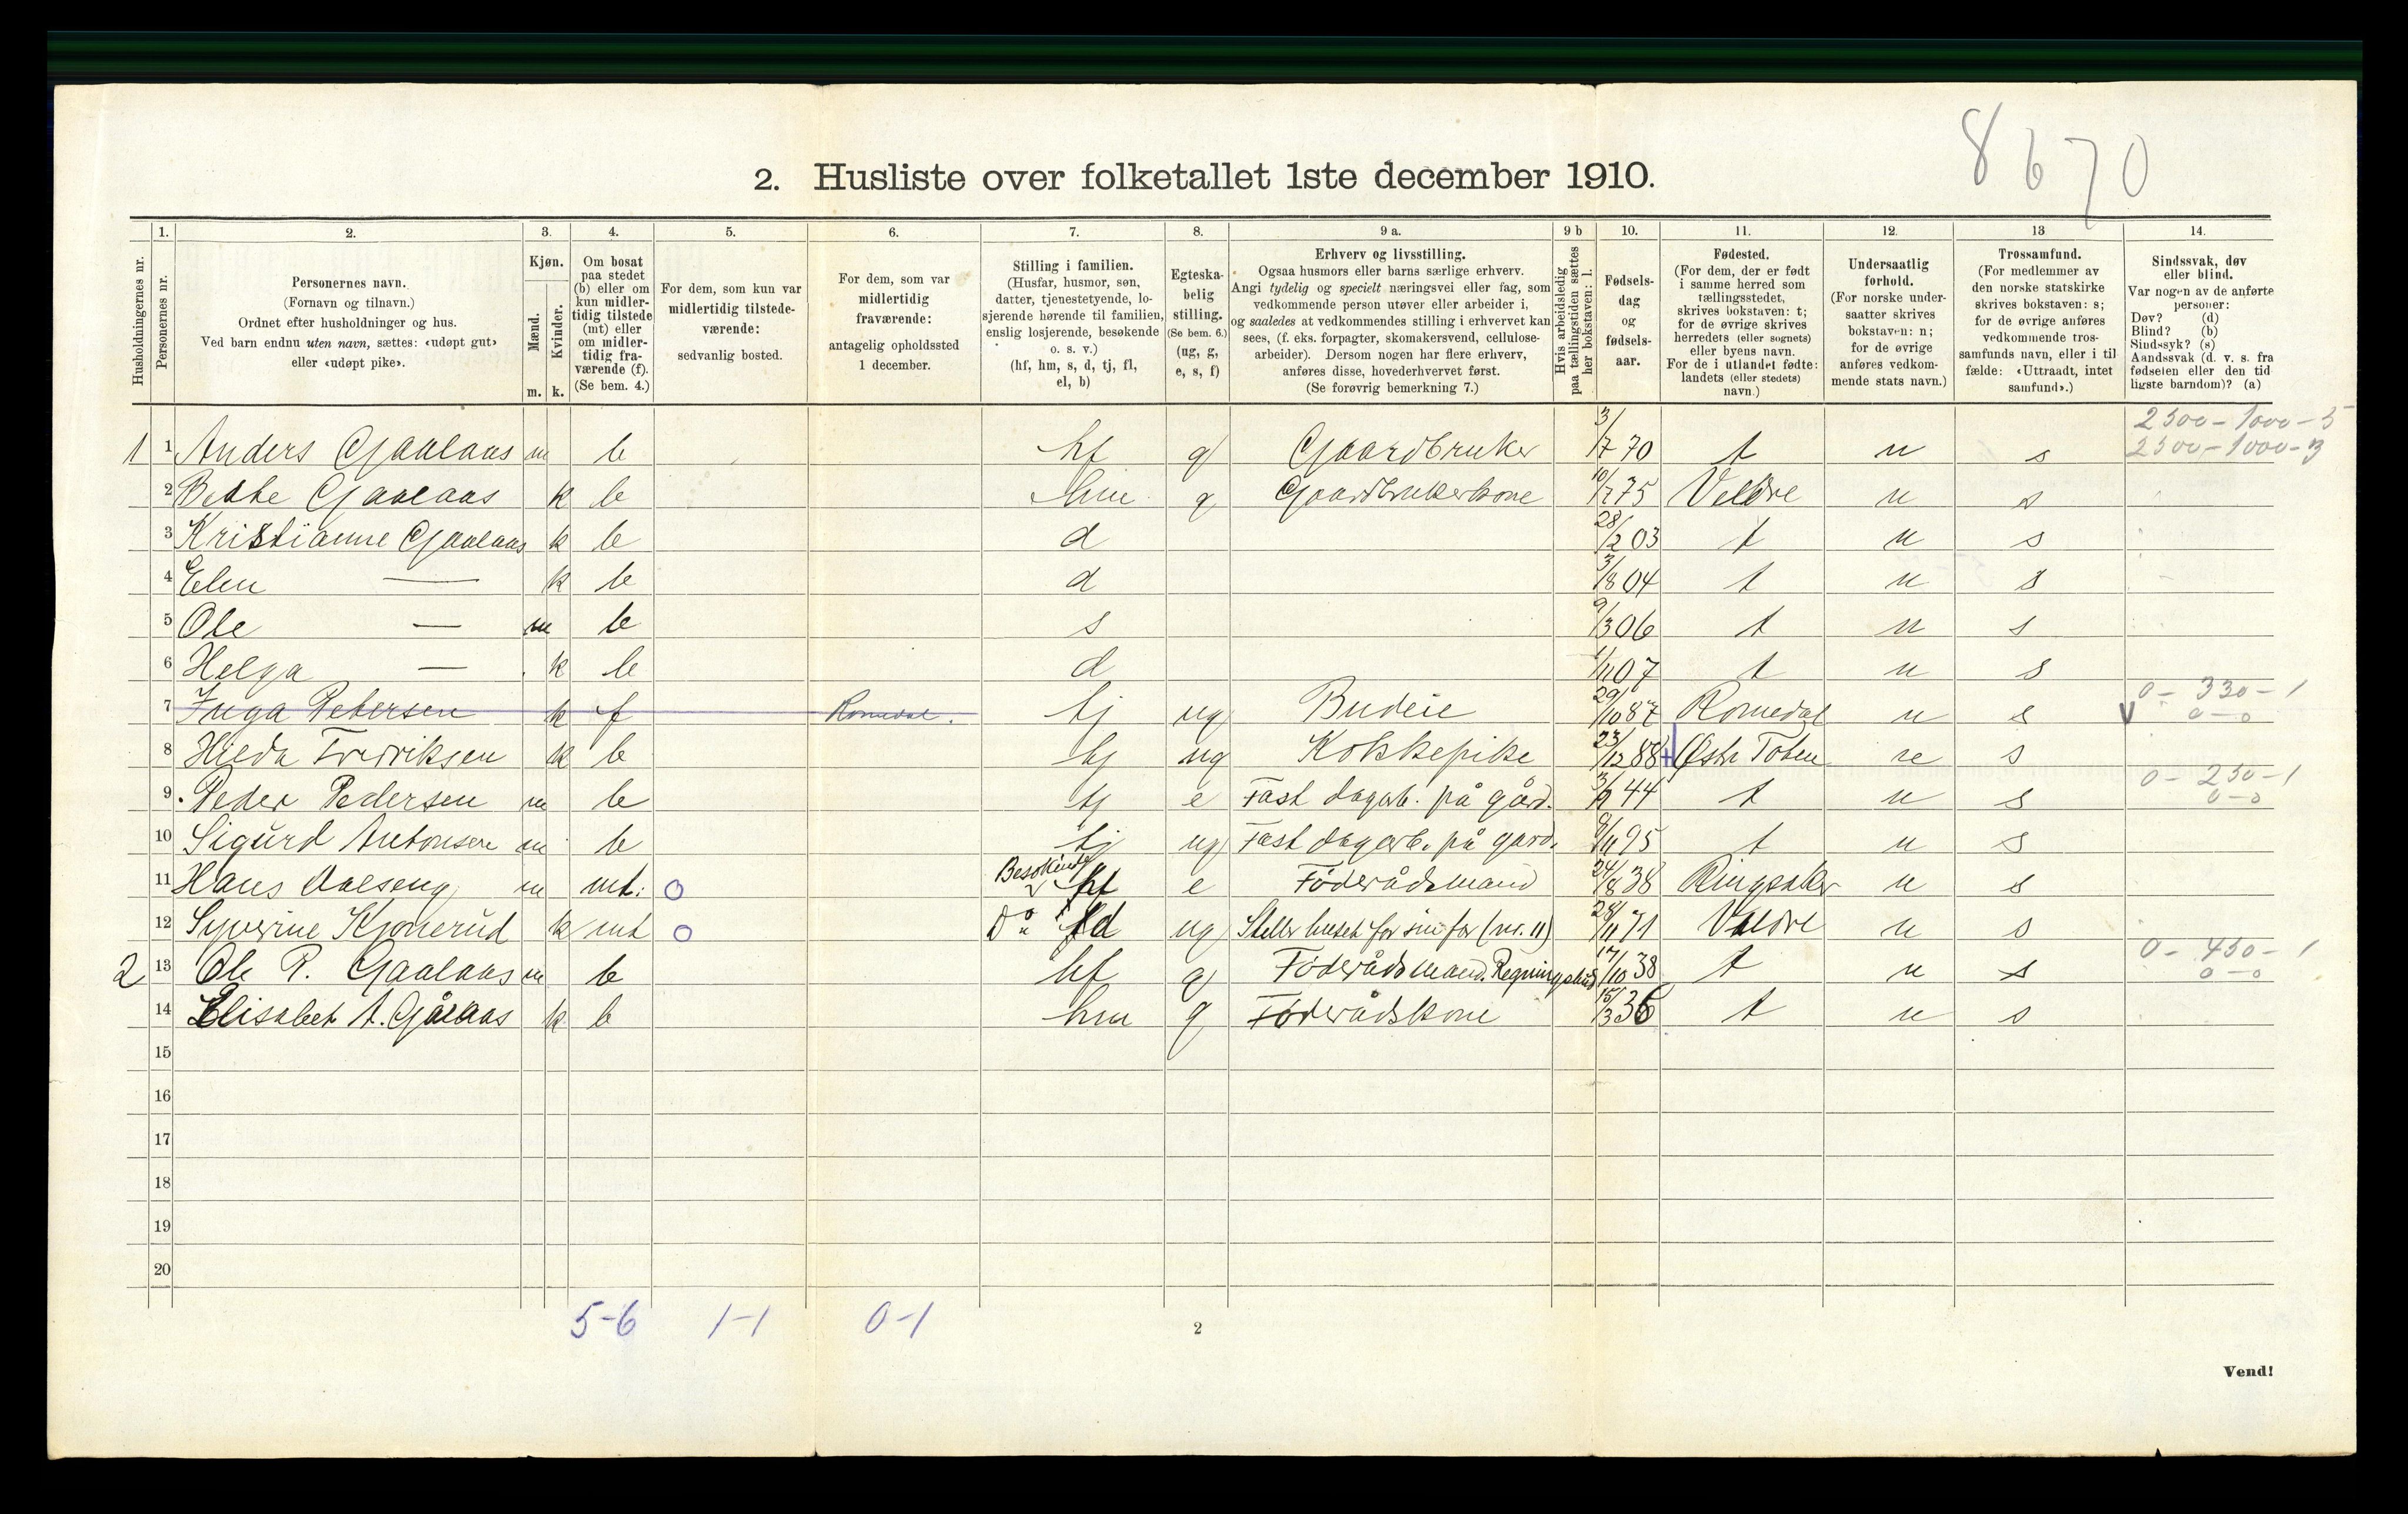 8670
2. Husliste over folketallet 1ste december 1910.
Husholdningernes nr.
1. Personernes nr.
2. Personernes navn.
(Fornavn og tilnavn.)
Ordnet efter husholdninger og hus.
Ved barn endnu uten navn, sættes: «udøpt gut»
eller «udøpt pike».
3. Kjøn.
Mænd. m.
Kvinder. k.
4. Om bosat
paa stedet
(b) eller om
kun midler-
tidig tilstede
(mt) eller
om midler-
tidig fra-
værende (f).
(Se bem. 4.)
5. For dem, som kun var
midlertidig tilstede-
værende:
sedvanlig bosted.
6. For dem, som var
midlertidig
fraværende:
antagelig opholdssted
1 december.
7. Stilling i familien.
(Husfar, husmor, søn,
datter, tjenestetyende, lo-
sjerende hørende til familien,
enslig losjerende, besøkende
o. s. v.)
(hf, hm, s, d, tj, fl,
el, b)
8. Egteska-
belig
stilling.
(Se bem. 6.)
(ug, g,
e, s, f)
9 a. Erhverv og livsstilling.
Ogsaa husmors eller barns særlige erhverv.
Angi tydelig og specielt næringsvei eller fag, som
vedkommende person utøver eller arbeider i,
og saaledes at vedkommendes stilling i erhvervet kan
sees, (f. eks. forpagter, skomakersvend, cellulose-
arbeider). Dersom nogen har flere erhverv,
anføres disse, hovederhvervet først.
(Se forøvrig bemerkning 7.)
9 b Hvis arbeidsledig
paa tællingstiden sættes
her bokstaven: l.
10. Fødsels-
dag
og
fødsels-
aar.
11. Fødested.
(For dem, der er født
i samme herred som
tællingsstedet,
skrives bokstaven: t;
for de øvrige skrives
herredets (eller sognets)
eller byens navn.
For de i utlandet fødte:
landets (eller stedets)
navn.)
12. Undersaatlig
forhold.
(For norske under-
saatter skrives
bokstaven: n;
for de øvrige
anføres vedkom-
mende stats navn.)
13 Trossamfund.
(For medlemmer av
den norske statskirke
skrives bokstaven: s;
for de øvrige anføres
vedkommende tros-
samfunds navn, eller i til-
fælde: «Uttraadt, intet
samfund».)
14. Sindssvak, døv
eller blind.
Var nogen av de anførte
personer:
Døv? (d)
Blind? (b)
Sindssyk? (s)
Aandssvak (d. v. s. fra
fødselen eller den tid-
ligste barndom)? (a)
2500-1000-5
1 1 Anders Gaalaas m b hf g Gaardbruker 3/7 70 t n s 2500-1000-3
2 Berthe Gaalaas k b hm g Gaardbrukerkone 10/7 75 Veldre n s
3 Kristianne Gaalaas k b d 28/2 03 t n s
4 Elen — k b d 3/8 04 t n s
5 Ole — m b s 9/3 06 t n s
6 Helga — k b d 1/11 07 t n s
7 Inga Petersen k f Romedal. tj ug Budeie 29/10 87 Romedal n s 0-330-1
0-0
8 Hilda Fredriksen k b tj ug Kokkepike 23/12 88 Østr Toten n s
9 Peder Pedersen m b tj e Fast dagarb. på gård. 44 t n s 0-250-1
0-0
10 Sigurd Antonsen m b tj ug Fast dagarb. på gård. 9/11 95 t n s
11 Hans Dælseng m mt: Besøkende hf e Føderådsmand 24/8 38 Ringsaker n s
12 Syverine Kjonerud k mt Do d ug Steller huset for sin far (nr. 11) 28/11 71 Veldre n s
2 13 Ole P. Gaalaas m b hf g Føderådsmand. 17/10 38 t n s 0-450-1
0-0
14 Elisabet A. Gålaas k b hm g Føderådskone 15/3 36 t n s
15
16
17
18
19
20
5-6 1-1 0-1
2
Vend!